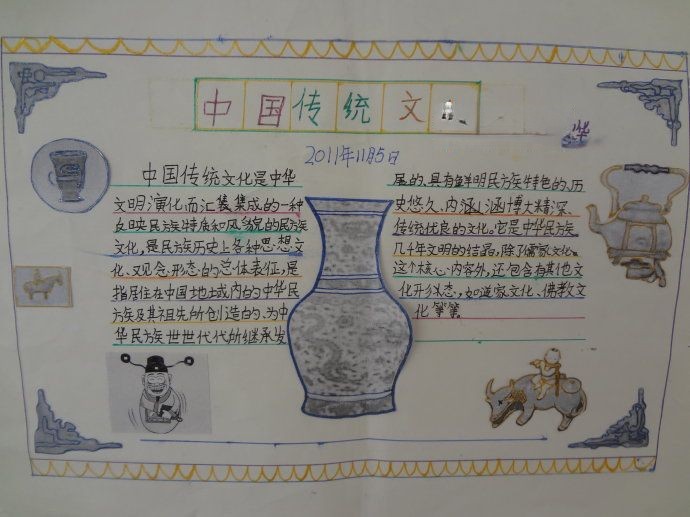 中国传统文
2011年11月5日
中国传统文化是中华
文明演化而汇集集成的一种
反映民族特质和风貌的民族
文化,是民族历史上各种思想文
化、观念形态的总体表征,是
指居住在中国地域内的中华民
族及其祖先所创造的、为中
华民族世世代代所继承发
展的、具有鲜明民族特色的、历
史悠久、内涵涵博大精深、
传统优良的文化。它是中华民族
几千年文明的结晶,除了儒家文化。
这个核心内容外,还包含有其他文
化形态,如道家文化、佛教文
化等等。